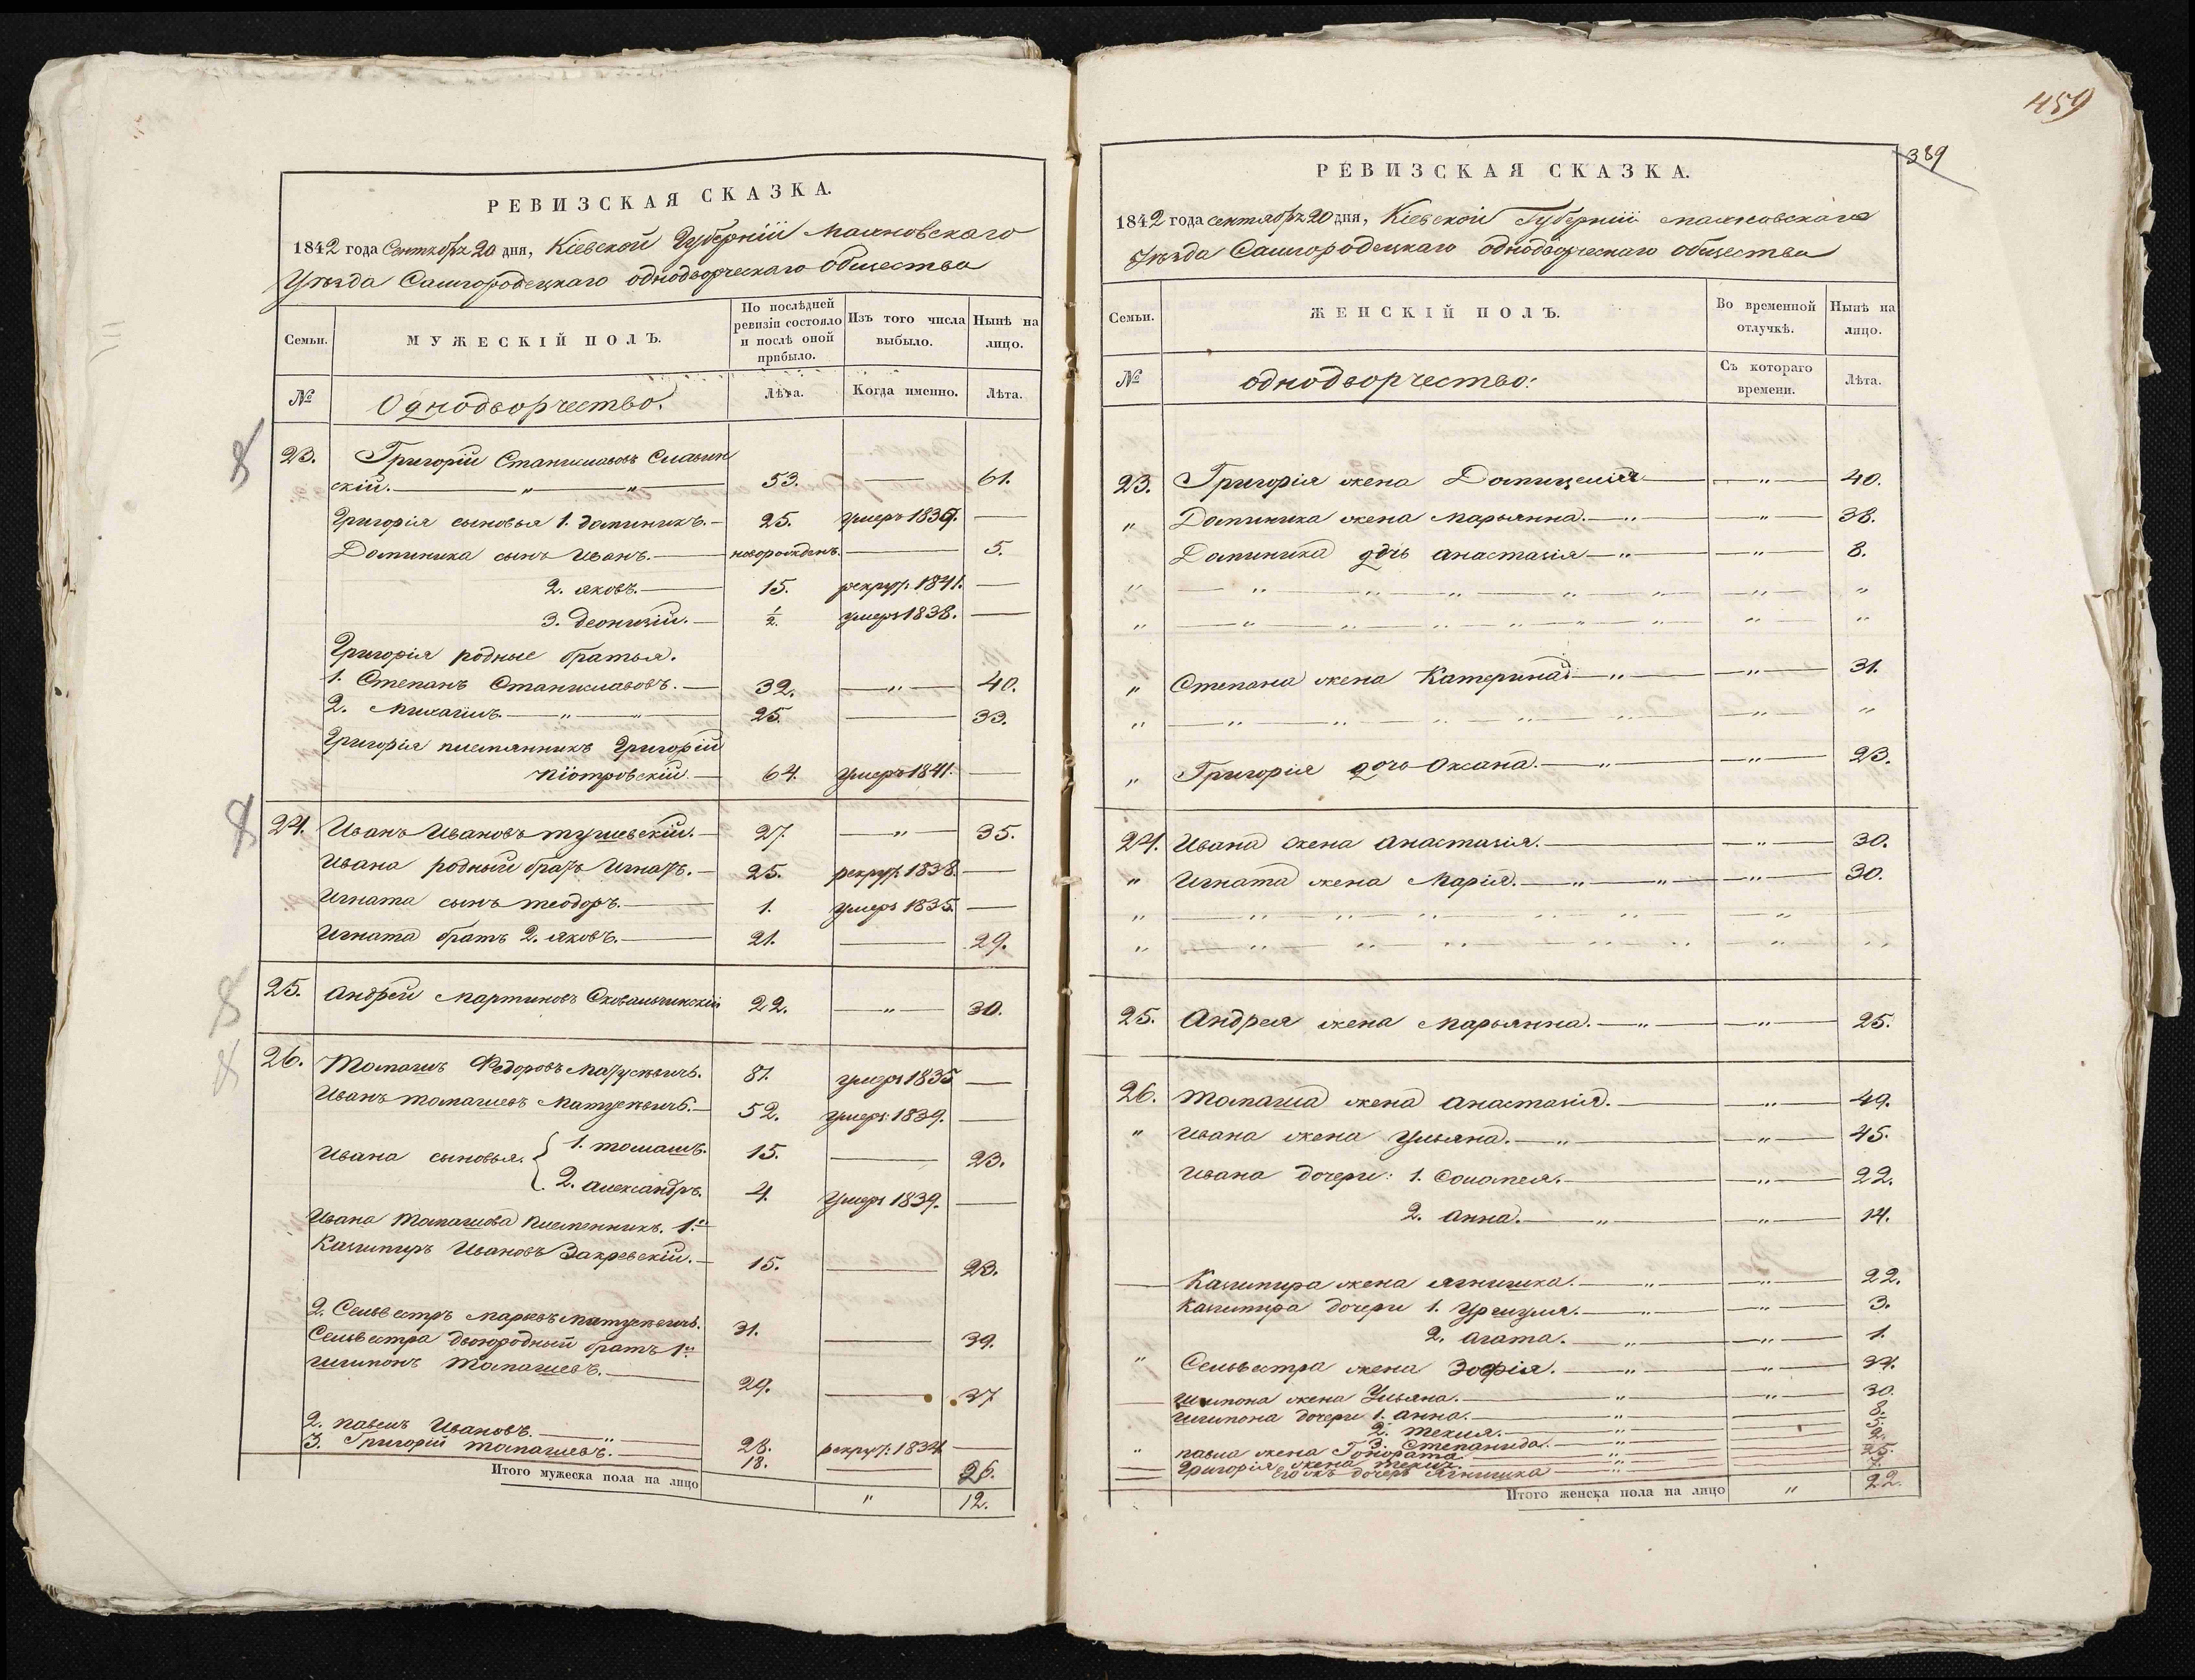 РЕВИЗСКАЯ СКАЗКА.
1842 года Сентября 20 дня, Кіевской Губерніи Махновскаго
Уѣзда Самгородецкаго однодворческаго общества
Семьи.
МУЖЕСКІЙ ПОЛЪ.
По послѣдней ревизіи состояло и послѣ оной прибыло.
Изъ того числа выбыло.
Нынѣ на лицо.
№
Однодворчество.
Лѣта.
Когда именно.
Лѣта.
23. Григорій Станиславовъ Славин
скій. — „ — „ — 53. — 61.
Григорія сыновья 1. доминикъ. — 25. умеръ 1839. —
Доминика сынъ Иванъ. — новорожденъ. — 5.
2. яковъ. — 15. рекрут. 1841. —
3. Деонизій. — ½. умеръ 1838. —
Григорія родные братья.
1. Степанъ Станиславовъ. — 32. — „ — 40.
2. Михаилъ. — „ — „ — 25. — 33.
Григорія племянникъ Григорій
піотровскій. — 64. умеръ 1841. —
24. Иванъ Ивановъ тушевскій. — 27 — „ — 35.
Ивана родный братъ Игнатъ. — 25. рекрут. 1838. —
Игната сынъ теодоръ. — 1. умеръ 1835. —
Игната братъ 2. яковъ. — 21. — 29.
25. Андрей Мартиновъ Сковальчинскій 22. — „ — 30.
26. Томашъ Федоровъ Матускевичъ. 81. умеръ 1835 —
Иванъ томашевъ Матускевичъ. — 52. умеръ 1839. —
Ивана сыновья. { 1. томашъ. 15. — 23.
2. александръ. 4. умеръ 1839. —
Ивана Томашова племенникъ. 1й
Казимиръ Ивановъ Закревскій. — 15. — 23.
2. Сельвестръ Марковъ Матускевичъ. 31. — 39.
Сельвестра двоюродный братъ 1й
шимонъ Томашевъ. — 29. — 37
2. павелъ Ивановъ. — „ — 28. рекрут. 1834 —
3. Григорій томашевъ. — 18. — 26.
Итого мужеска пола на лицо „ 12.
459
389
РЕВИЗСКАЯ СКАЗКА.
1842 года сентября 20 дня, Кіевской Губерніи Махновскаго
Уѣзда Самгородецкаго однодворческаго общества
Семьи.
ЖЕНСКІЙ ПОЛЪ.
Во временной отлучкѣ.
Нынѣ на лицо.
№
однодворчество:
Съ котораго времени.
Лѣта.
23. Григорія жена Домицелія — „ — 40.
„ Доминика жена Марьянна. — „ — „ — 38.
Доминика дочь анастазія — „ — „ — 8.
„ Степана жена Катерина — „ — „ — 31.
„ Григорія дочь Оксана. — „ — „ — 23.
24. Ивана жена Анастазія. — „ — 30.
„ Игната жена Марія. — „ — „ — „ — 30.
25. Андрея жена Марьянна. — „ — „ — 25.
26. Томаша жена Анастазія. — „ — 49.
„ Ивана жена Ульяна. — „ — „ — 45.
Ивана дочери: 1. Соломея. — „ — 22.
2. Анна. — „ — „ — 14.
— Казимира жена ягнишка. — „ — „ — 22.
Казимира дочери 1. Уршуля. — „ — „ — 3.
2. агата. — „ — „ — 1.
„ Сельвестра жена Зофія. — „ — „ — 34.
— Шимона жена Ульяна. — „ — „ — 30.
Шимона дочери 1. анна. — „ — 8.
2. текля. — „ — 5.
3. Степанида. — „ — 2.
„ павла жена Гонората — „ — 25.
— Григорія жена текля. — „
Его жъ дочерь Ягнишка — „
Итого женска пола на лицо „ 22.